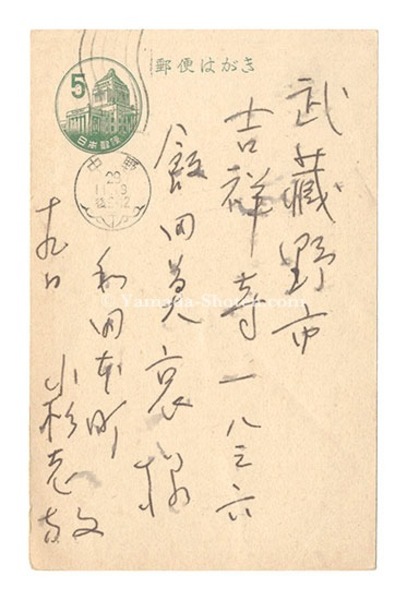 郵便はがき
5
日本郵便
中野
武蔵野市
吉祥寺一八三六
飯田莫哀様
和田本町
小杉
十九日
© Yamada-Shoten.com